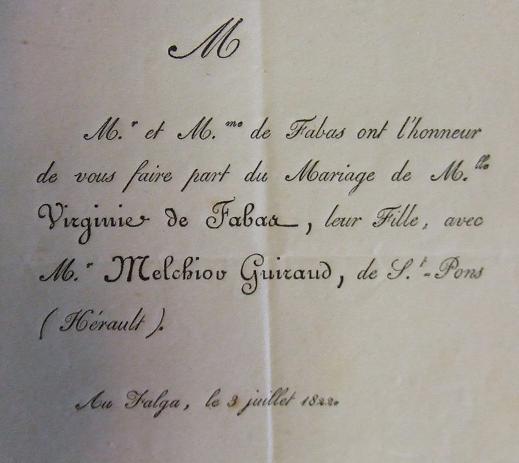 M
M.r et M.me de Fabas ont l'honneur
de vous faire part du Mariage de M.lle
Virginie de Fabas, leur Fille, avec
M.r Melchior Guiraud, de S.t-Pons
(Hérault).
Au Falga, le 3 juillet 1822.